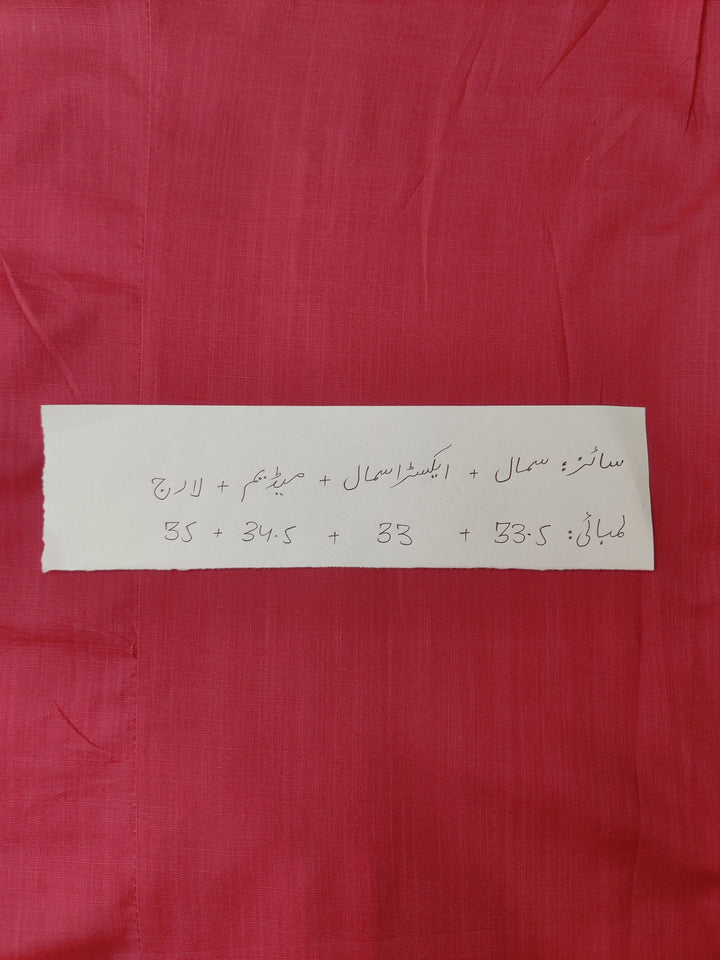 سائز: سمال + ایکسٹرا سمال + میڈیم + لارج
لمبائی: 33.5 + 33 + 34.5 + 35